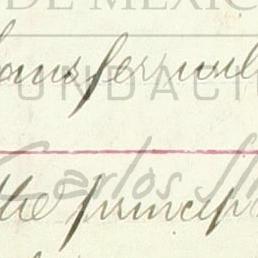 DE MÉXICO
transfer
FUNDACIÓN
Carlos Sl
the princip